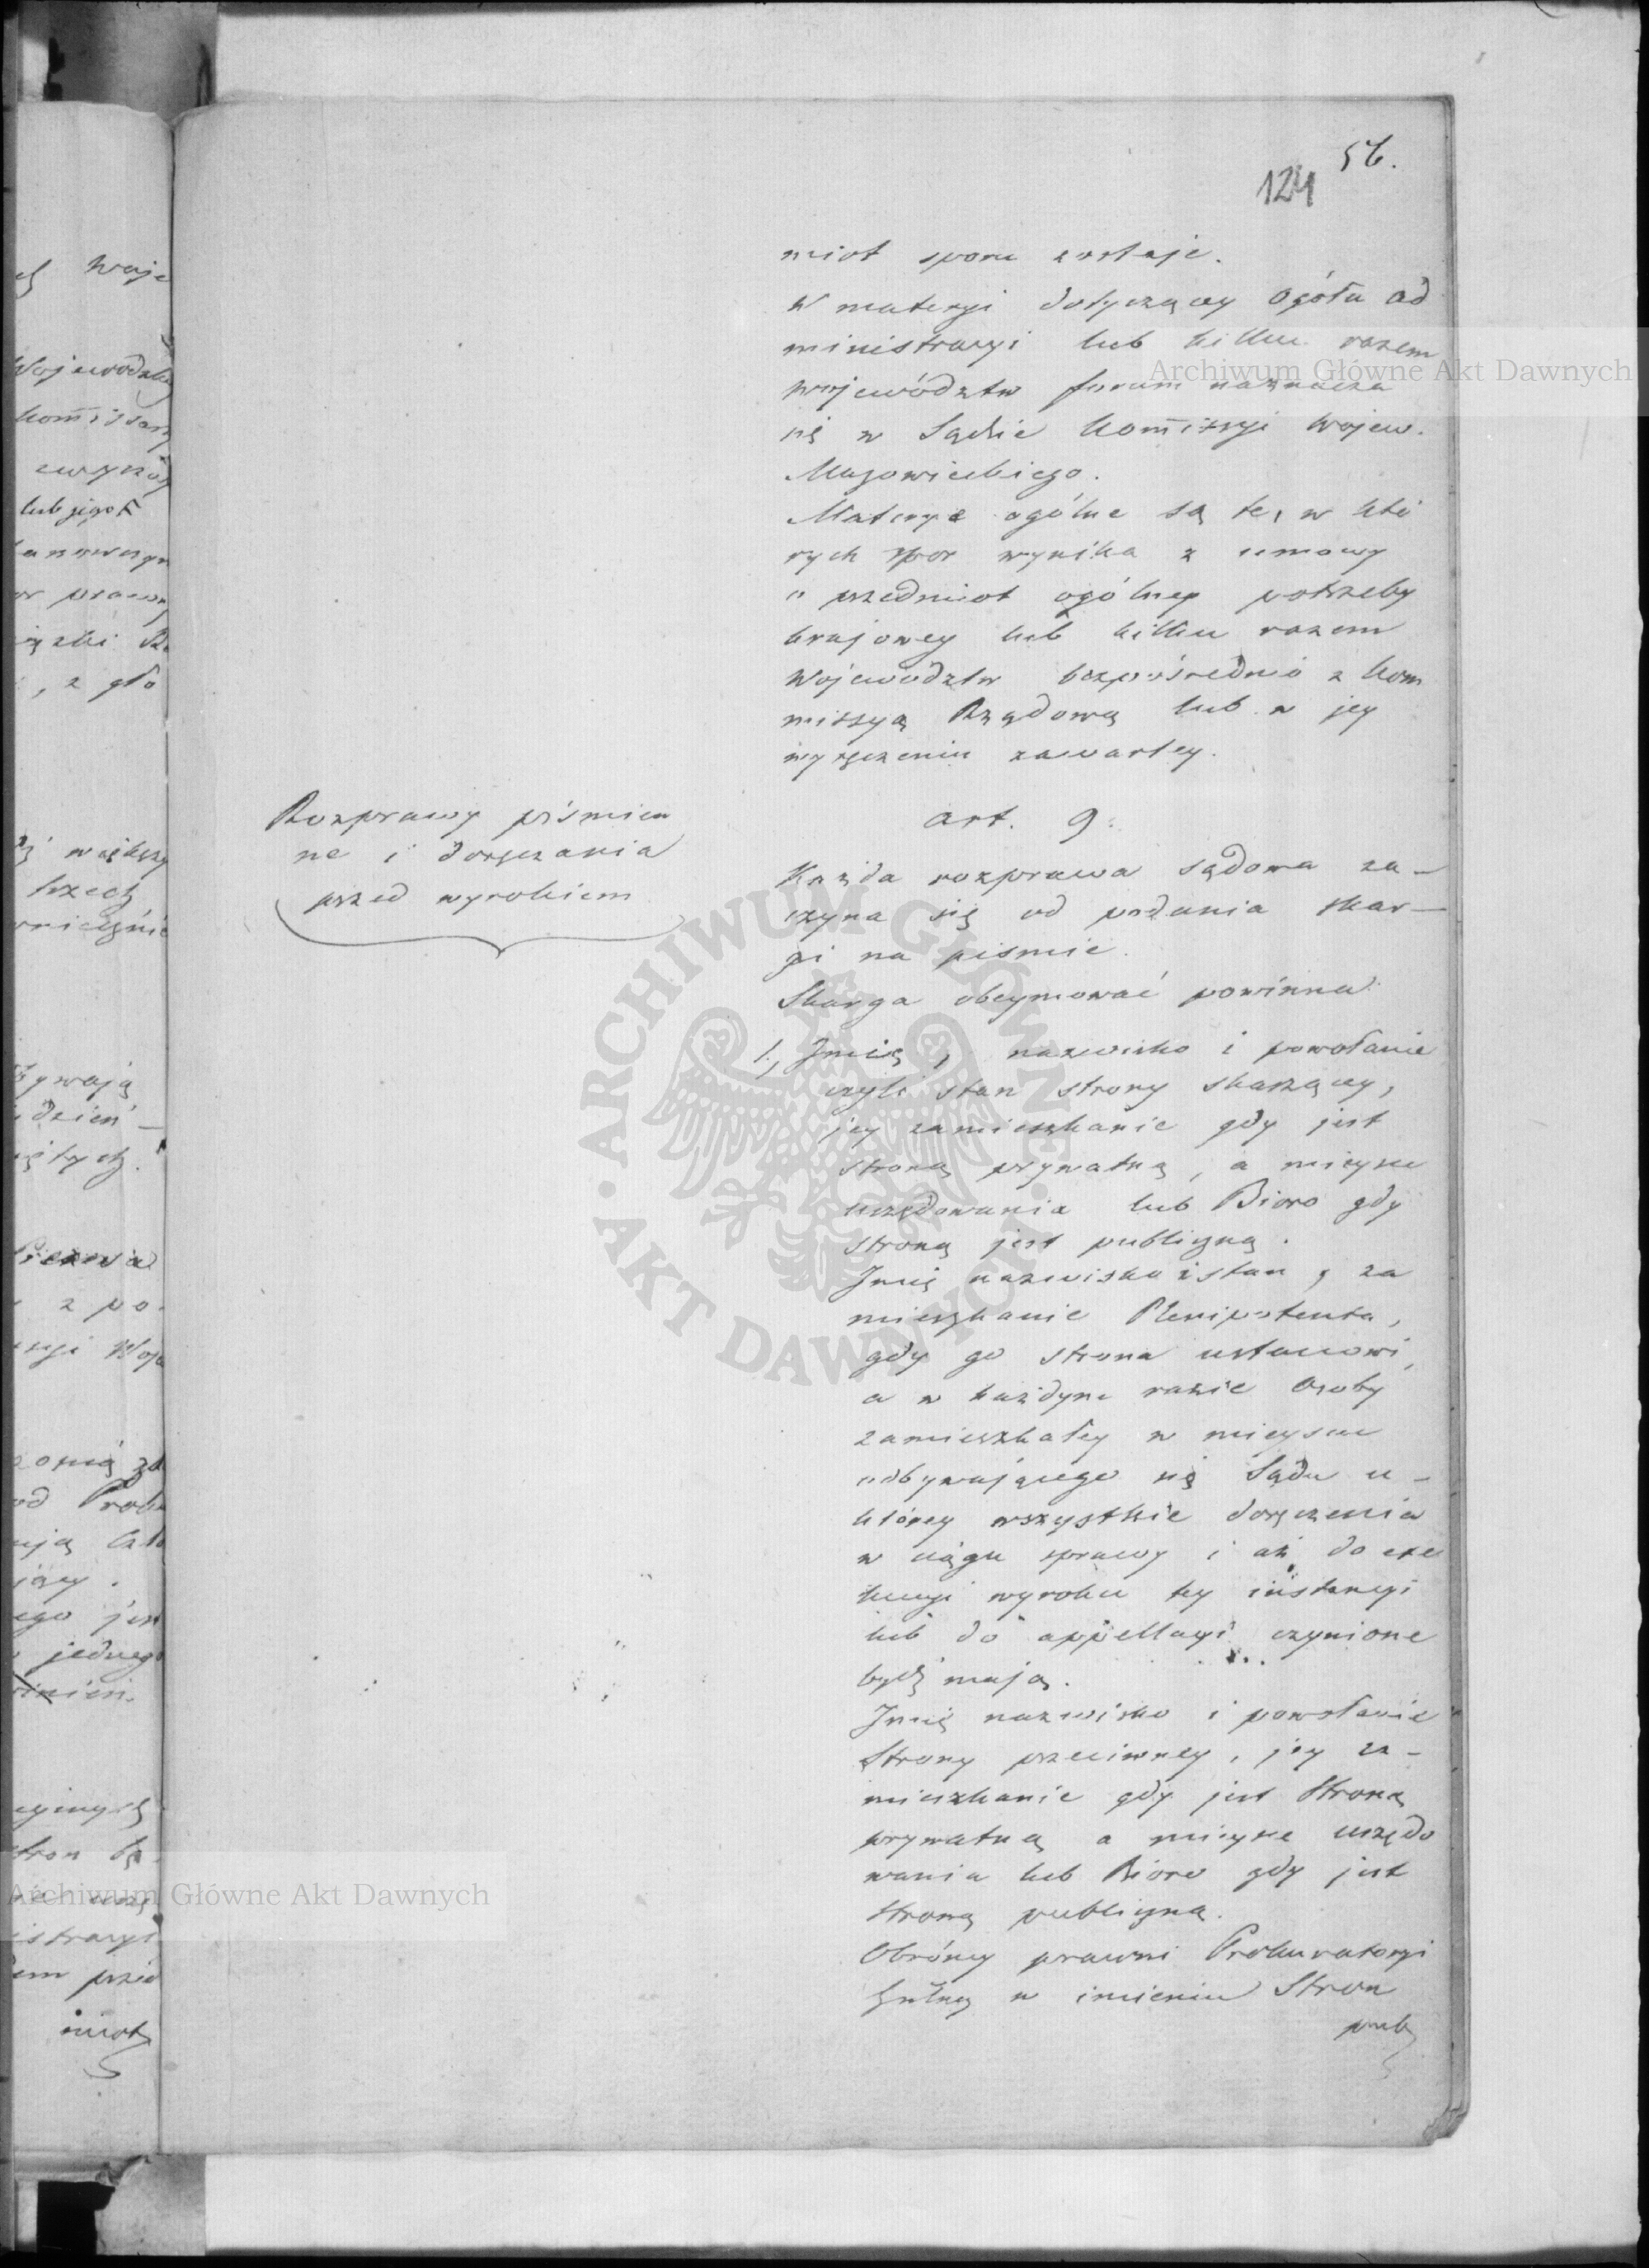 56.
124
miot sporu zostaje.
W materyi dotyczącey ogółu ad
ministracyi lub kilku razem
województw forum naznacza
się w Sądzie Kom̄issyi Wojew.
Mazowieckiego.
Materye ogólne są te, w któ
rych spor wynika z umowy
o przedmiot ogólney potrzeby
krajowey lub kilku razem
Województw bezpośrednio z Kom
missyą Rządową lub w jey
wyręczeniu zawartey.
Rozprawy piśmien
ne i doręczania
przed wyrokiem
Art. 9.
Każda rozprawa sądowa za-
czyna się od podania skar-
gi na piśmie.
Skarga obeymować powinna:
1., Jmię, nazwisko i powołanie
czyli stan strony skarzącey,
jey zamieszkanie gdy jest
stroną prywatną, a mieysce
urzędowania lub Bioro gdy
stroną jest publiczną.
Jmię nazwisko i stan, za
mieszkanie Plenipotenta,
gdy go strona ustanowi,
a w każdym razie Osoby
zamieszkałey w mieyscu
odbywającego się Sądu u-
którey wszystkie doręczenia
w ciągu sprawy i aż do exe
kucyi wyroku tey instancyi
lub do appellacyi czynione
bydź mają.
Jmię nazwisko i powołanie
Strony przeciwney, jey za-
mieszkanie gdy jest Stroną
prywatną a mieysce urzędo
wania lub Bioro gdy jest
stroną publiczną.
Obrońcy prawni Prokuratoryi
Gńlney w imieniu Stron
publ
Archiwum Główne Akt Dawnych
ARCHIWUM GŁÓWNE · AKT DAWNYCH ·
Archiwum Główne Akt Dawnych